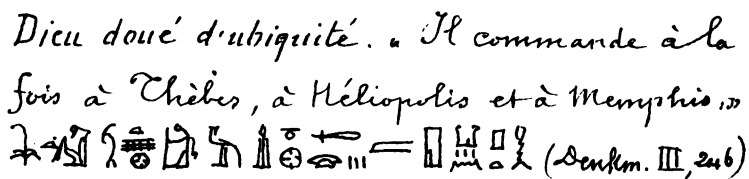 Dieu doué d'ubiquité. « Il commande à la
fois à Thèbes, à Héliopolis et à Memphis. »
(Denkm. III, 246)